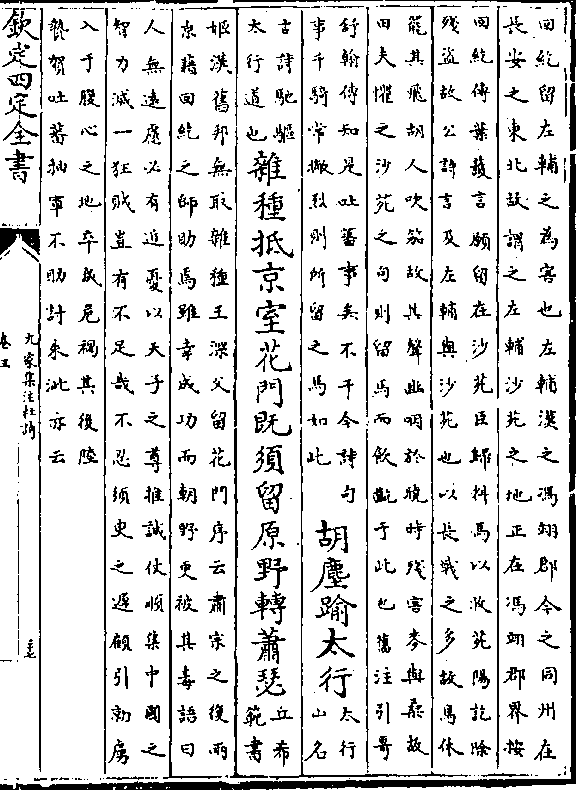 回紇留左輔之為害也左輔漢之馮翊郡今之同州在
長安之東北故謂之左輔沙苑之地正在馮翊郡界按
回紇傳葉護言願留在沙苑臣歸料馬以收范陽訖除
殘盜故公詩言及左輔與沙苑也以長㦸之多故馬休
罷其飛胡人吹笳故其聲幽咽於曉時殘害麥與桑故
田夫懼之沙苑之句則留馬而飲齕于此也舊注引哥
舒翰傳知是吐蕃事矣不干今詩句
事千騎常撇烈則所留之馬如此
胡塵踰太行
太行
山名
古詩馳驅
太行道也
雜種抵京室花門既須留原野轉蕭瑟
丘希
範書
姬漢舊邦無取雜種王深父留花門序云肅宗之復兩
京藉回紇之師助焉雖幸成功而朝野更被其毒語曰
人無遠慮必有近憂以天子之尊推誠仗順集中國之
智力滅一狂賊豈有不足哉不忍須臾之遲顧引勍虜
入于腹心之地卒成危禍其後陸
贄賀吐蕃抽軍不助討朱泚亦云
欽定四庫全書
九家集注杜詩
卷五